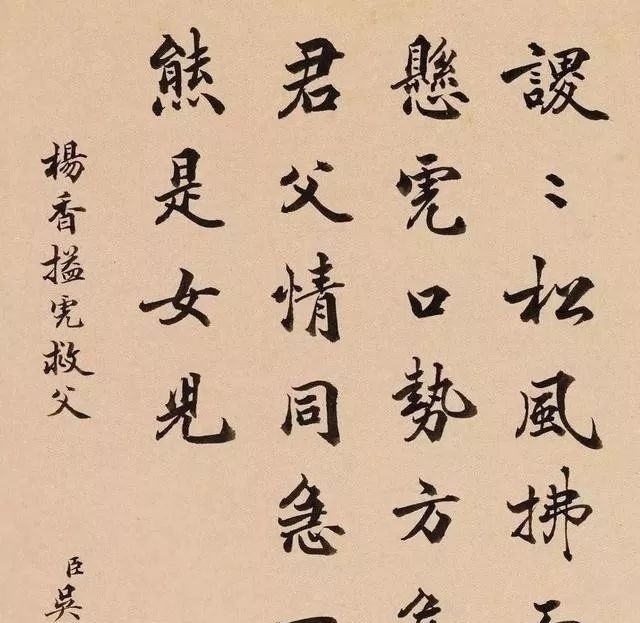 謖〻松風拂
懸虎口勢方
君父情同急
熊是女兒
楊香搤虎救父
臣吳